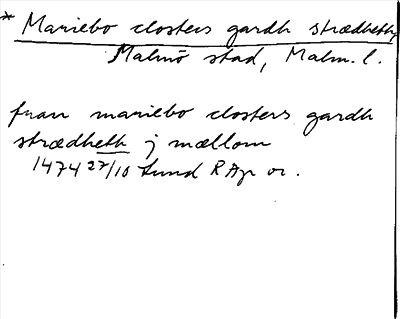 * Mariebo closters gardh strædheth,
Malmö stad, Malm. l.
fran mariebo closters gardh
strædheth j mællom
1474 27/10 Lund RAp or.